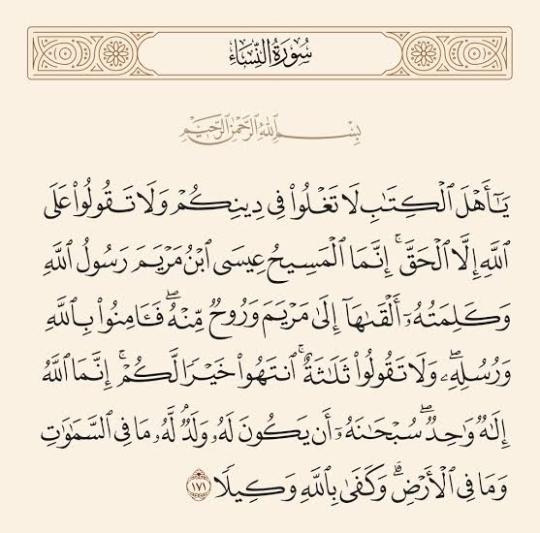 سُورَةُ النِّسَاءِ
بِسْمِ اللَّهِ الرَّحْمَٰنِ الرَّحِيمِ
يَـٰٓأَهْلَ ٱلْكِتَـٰبِ لَا تَغْلُوا۟ فِى دِينِكُمْ وَلَا تَقُولُوا۟ عَلَى
ٱللَّهِ إِلَّا ٱلْحَقَّ ۚ إِنَّمَا ٱلْمَسِيحُ عِيسَى ٱبْنُ مَرْيَمَ رَسُولُ ٱللَّهِ
وَكَلِمَتُهُۥٓ أَلْقَىٰهَآ إِلَىٰ مَرْيَمَ وَرُوحٌ مِّنْهُ ۖ فَـَٔامِنُوا۟ بِٱللَّهِ
وَرُسُلِهِۦ ۖ وَلَا تَقُولُوا۟ ثَلَـٰثَةٌ ۚ ٱنتَهُوا۟ خَيْرًا لَّكُمْ ۚ إِنَّمَا ٱللَّهُ
إِلَـٰهٌ وَٰحِدٌ ۖ سُبْحَـٰنَهُۥٓ أَن يَكُونَ لَهُۥ وَلَدٌ ۘ لَّهُۥ مَا فِى ٱلسَّمَـٰوَٰتِ
وَمَا فِى ٱلْأَرْضِ ۗ وَكَفَىٰ بِٱللَّهِ وَكِيلًا ١٧١